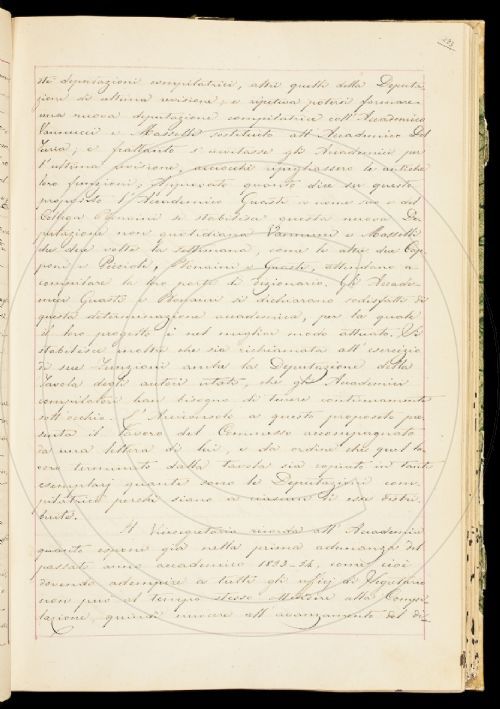 ste deputazioni compilatrici, altri quelli della Deputa-
zione di ultima revisione; e ripeteva potersi formare
una nuova deputazione compilatrice coll'Accademico
Vannucci e Masselli sostituito all'Accademico Del
Furia; e frattanto s'invitasse gli Accademici per
l'ultima revisione, acciocchè ripigliassero le antiche
loro funzioni. Approvato quanto dice su questo
proposito l'Accademico Guasti a nome suo e del
Collega Bonaini si stabilisce questa nuova De
putazione non quotidiana Vannucci e Masselli
che due volte la settimana, come le altre due Cap-
poni e Piccioli, Bonaini e Guasti, attendano a
compilare la loro parte di Dizionario. Gli Accade-
mici Guasti e Bonaini si dichiarano sodisfatti di
questa determinazione accademica, per la quale
il loro progetto è nel miglior modo attuato. Si
stabilisce inoltre che sia richiamata all'esercizio
di sue Funzioni anche la Deputazione della
Tavola degli autori citati, che gli Accademici
compilatori han bisogno di tenere continuamente
sott'occhio. L'Arciconsolo a questo proposito pre
senta il lavoro del Commesso accompagnato
da una lettera di lui, e dà ordine che quel la-
voro terminato dalla tavola sia copiato in tanti
esemplarj quante sono le Deputazioni com-
pilatrici perchè siano a ciascuna di esse distri
buite.
Il Vicesegretario ricorda all'Accademia
quanto espose già nella prima adunanza del
passato anno accademico 1853-54, come cioè
dovendo adempire a tutti gli ufizj di Segretario
non può al tempo stesso attendere alla Compi-
lazione, quindi nuocere all'avanzamento del di-